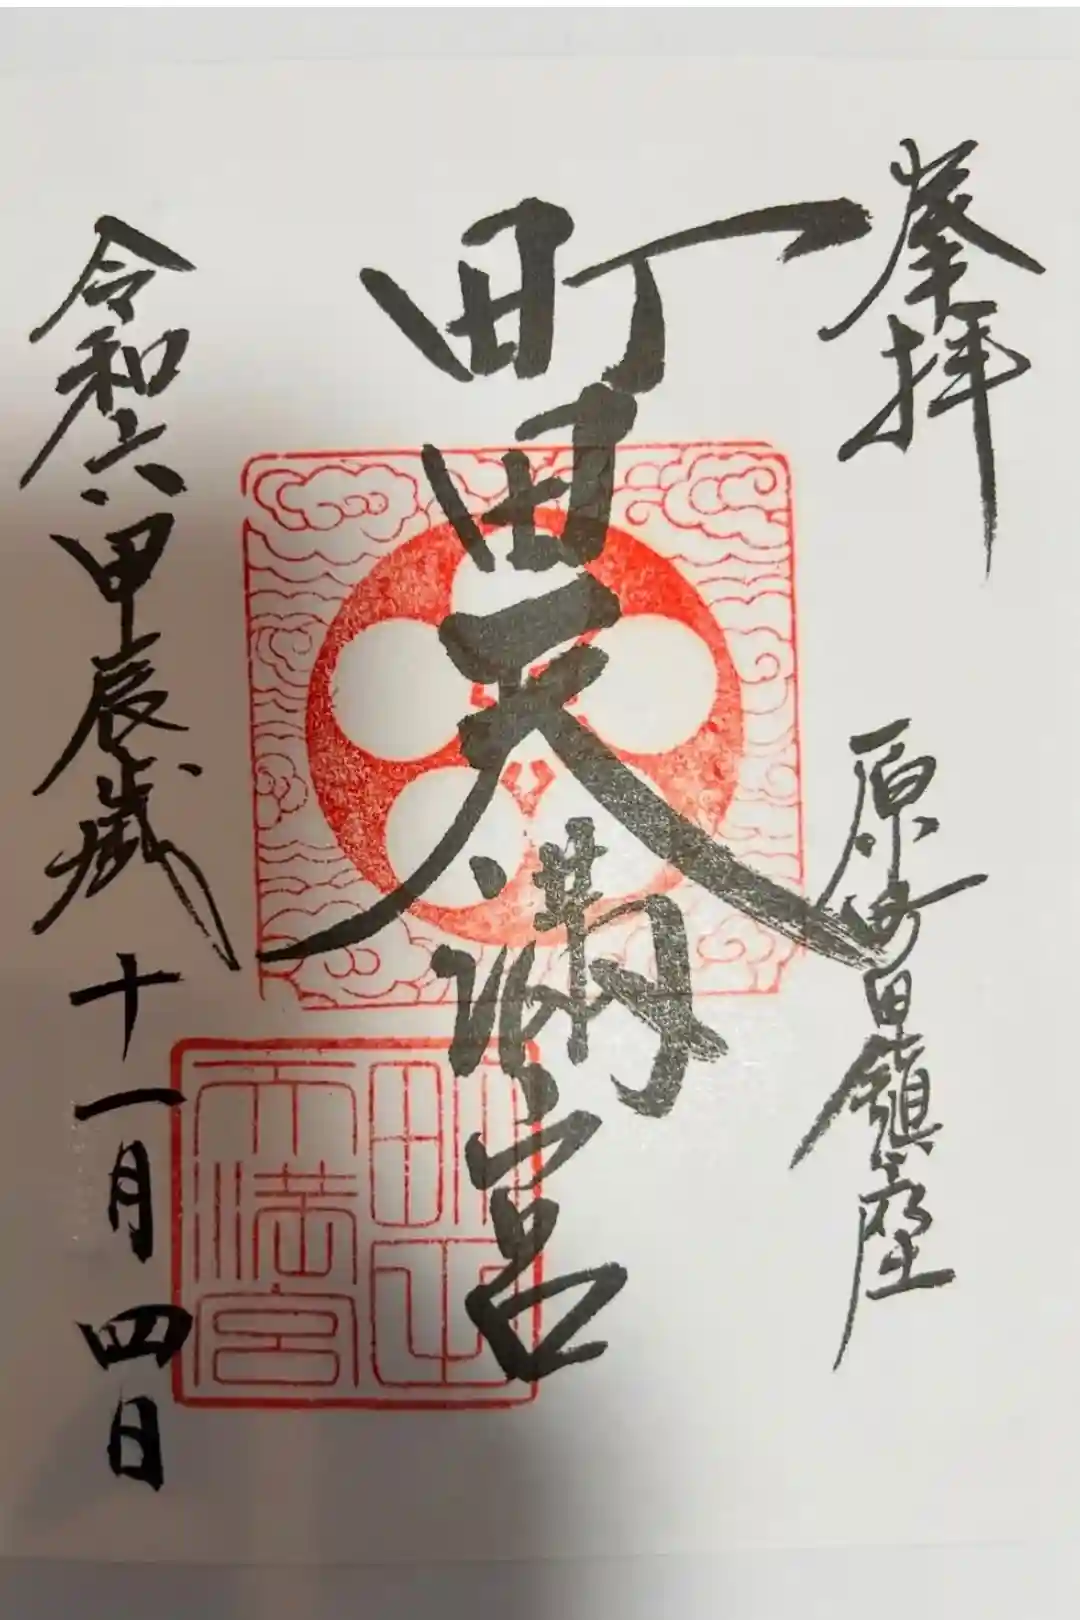 奉拝
原町田鎮座
町田天満宮
町田天満宮
令和六甲辰歳十一月四日